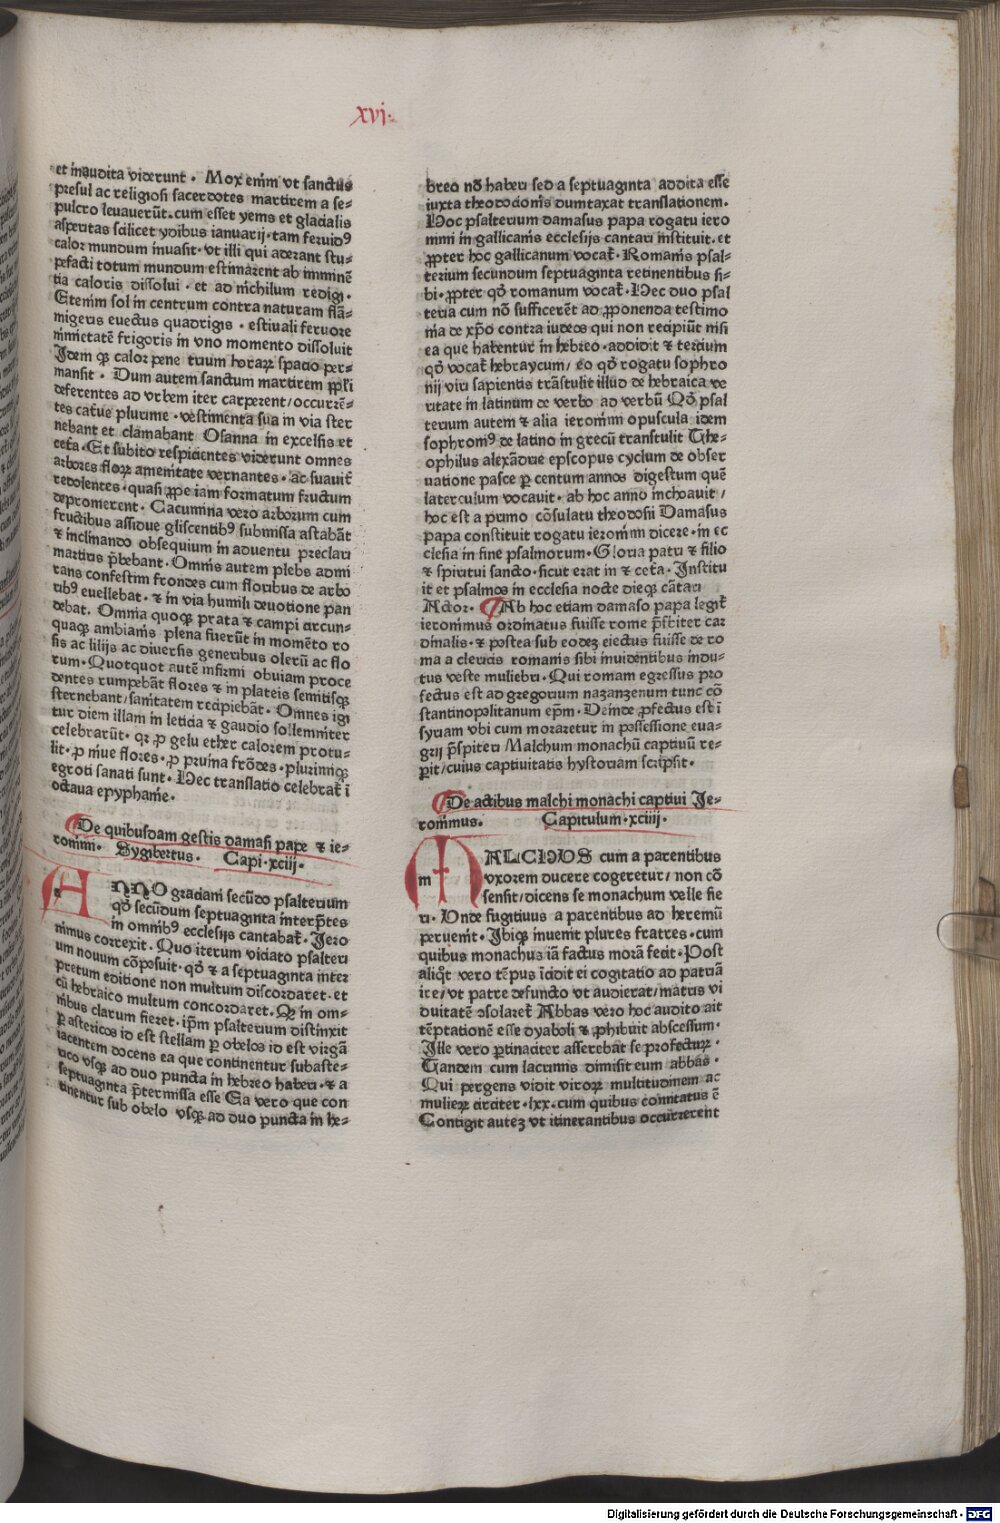 xvi.
et inaudita viderunt. Mox enim vt sanctus
presul ac religiosi sacerdotes martirem a se-
pulcro leuauerūt. cum esset yems et glacialis
asperitas scilicet ydibus ianuarij. tam feruidꝰ
calor mundum inuasit. vt illi qui aderant stu-
pefacti totum mundum estimarent ab imminē
tia caloris dissolui. et ad nichilum redigi.
Etenim sol in centrum contra naturam flā-
migeris euectus quadrigis. estiuali feruore
nimietatē frigoris in vno momento dissoluit
Idem qꝫ calor pene trium horaꝝ spacio per-
mansit. Dum autem sanctum martirem ꝓpli
deferentes ad vrbem iter carperent/occurrē-
tes cat̄ue plurime. vestimenta sua in via ster
nebant et clamabant Osanna in excelsis et
cet̄a. Et subito respicientes viderunt omnes
arbores floꝝ amenitate vernantes. ac suauit̄
redolentes. quasi ꝓpe iam formatum fructum
depromerent. Cacumina vero arborum cum
fructibus assidue gliscentibꝰ submissa astabāt
⁊ inclinando obsequium in aduentu preclari
martiris p̄bebant. Omnis autem plebs admi
rans confestim frondes cum floribus de arbo
ribꝰ euellebat. ⁊ in via humili deuotione pan
debat. Omnia quoqꝫ prata ⁊ campi circun-
quaqꝫ ambianis plena fuerūt in momēto ro
sis ac lilijs ac diuersis generibus olerū ac flo
rum. Quotquot autē infirmi obuiam proce
dentes rumpebāt flores ⁊ in plateis semitisqꝫ
sternebant/sanitatem recipiebāt. Omnes igi
tur diem illam in leticia ⁊ gaudio sollemniter
celebrarūt. qꝛ ꝓ gelu ether calorem protu-
lit. ꝓ niue flores. ꝓ pruina frōdes. plurimiqꝫ
egroti sanati sunt. Hec translatio celebrat̄ ī
octaua epyphanie.
De quibusdam gestis damasi pape ⁊ ie-
ronimi. Sygibertus. Capi. xciij.
ANNO graciani secūdo psalterium
qd̄ secūdum septuaginta interp̄tes
in omnibꝰ ecclesijs cantabat̄. Jero
nimus correxit. Quo iterum viciato psalteri
um nouum cōposuit. qd̄ ⁊ a septuaginta inter
pretum editione non multum discordaret. et
cū hebraico multum concordaret. Qꝫ in om-
nibus clarum fieret. ip̄m psalterium distinxit
ꝑ astericos id est stellam ꝑ obelos id est virgā
iacentem docens ea que continentur subaste-
rico vsqꝫ ad duo puncta in hebreo haberi. ⁊ a
septuaginta p̄termissa esse Ea vero que con
tinentur sub obelo vsqꝫ ad duo puncta in he-
breo nō haberi sed a septuaginta addita esse
iuxta theodocionis dumtaxat translationem.
Hoc psalterium damasus papa rogatu iero
nimi in gallicanis ecclesijs cantari instituit. et
ꝓpter hoc gallicanum vocat̄. Romanis psal-
terium secundum septuaginta retinentibus si-
bi. ꝓpter qd̄ romanum vocat̄. Hec duo psal
teria cum nō sufficerēt ad ꝓponenda testimo
nia de xp̄o contra iudeos qui non recipiūt nisi
ea que habentur in hebreo. addidit ⁊ tercium
qd̄ vocat̄ hebraycum/ eo qd̄ rogatu sophro
nij viri sapientis trāstulit illud de hebraica ve
ritate in latinum de verbo ad verbū Qd̄ psal
terium autem ⁊ alia ieronimi opuscula idem
sophronꝰ de latino in grecū transtulit The-
ophilus alexādrie epscopus cyclum de obser
uatione pasce ꝑ centum annos digestum quē
laterculum vocauit. ab hoc anno inchoauit/
hoc est a primo cōsulatu theodosii Damasus
papa constituit rogatu ieronimi dicere. in ec
clesia in fine psalmorum. Gloria patri ⁊ filio
⁊ spiritui sancto. sicut erat in ⁊ cet̄a. Institu
it et psalmos in ecclesia nocte dieqꝫ cātari
Actor. Ab hoc etiam damaso papa legit̄
ieronimus ordinatus fuisse rome p̄sbiter car
dinalis. ⁊ postea sub eodeꝫ eiectus fuisse de ro
ma a clericis romanis sibi inuidentibus indu-
tus veste muliebri. Qui romam egressus pro
fectus est ad gregorium nazanzenum tunc cō
stantinopolitanum ep̄m. Deinde ꝓfectus est ī
syriam vbi cum moraretur in possessione eua-
grij p̄spiteri Malchum monachū captiuū re-
ꝑit/cuius captiuitatis hystoriam scripsit.
De actibus malchi monachi captiui Je-
ronimus. Capitulum. xciiij.
m
MALCHVS cum a parentibus
vxorem ducere cogeretur/ non cō
sensit/dicens se monachum velle fie
ri. Vnde fugitiuus a parentibus ad heremū
peruenit. Ibiqꝫ inuenit plures fratres. cum
quibus monachus iā factus morā fecit. Post
aliqt̄ vero tēpus īcidit ei cogitatio ad patriā
ire/vt patre defuncto vt audierat/matris vi
duitatē ↄsolaret̄ Abbas vero hoc audito ait
tēptationē esse dyaboli ⁊ ꝓhibuit abscessum.
Ille vero ꝑtinaciter asserebat se profectuꝝ.
Tandem cum lacrimis dimisit eum abbas.
Qui pergens vidit viroꝝ multitudinem ac
mulieꝝ circiter. lxx. cum quibus comitatus ē
Contigit auteꝫ vt itinerantibus occurrerent
Digitalisierung gefördert durch die Deutsche Forschungsgemeinschaft - DFG